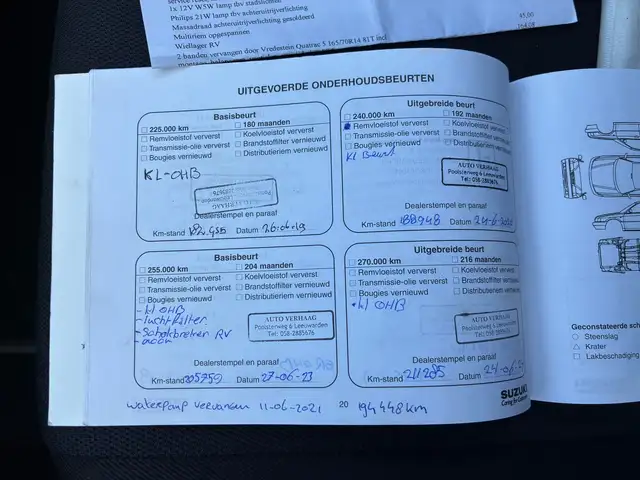 1x 12V W5W lamp tbv stadslicht
Philips 21W lamp tbv achteruitrijverlichting
Massadraad achteruitrijverlichting gesoldeerd
Multiriem opgespannen
Wiellager RV
45,00
164,08
2 banden vervangen door Vredestein Quatrac 5 165/70R14 81T incl
UITGEVOERDE ONDERHOUDSBEURTEN
Basisbeurt
225.000 km 180 maanden
Remvloeistof ververst Koelvloeistof ververst
Transmissie-olie ververst Brandstoffilter vernieuwd
Bougies vernieuwd Distributieriem vernieuwd
KL-OHB
Dealerstempel en paraaf
Km-stand 182.456 Datum 26-06-19
Uitgebreide beurt
240.000 km 192 maanden
Remvloeistof ververst Koelvloeistof ververst
Transmissie-olie ververst Brandstoffilter vernieuwd
Bougies vernieuwd Distributieriem vernieuwd
Kl Beurt
AUTO VERHAAG
Poolsterweg 6 Leeuwarden
Tel: 058-2885676
Dealerstempel en paraaf
Km-stand 188948 Datum
Basisbeurt
255.000 km 204 maanden
Remvloeistof ververst Koelvloeistof ververst
Transmissie-olie ververst Brandstoffilter vernieuwd
Bougies vernieuwd Distributieriem vernieuwd
- kl OHB
- luchtfilter
- Schokbreker RV
AUTO VERHAAG
Poolsterweg 6 Leeuwarden
Tel: 058-2885676
Dealerstempel en paraaf
Km-stand 205750 Datum 27-06-23
Uitgebreide beurt
270.000 km 216 maanden
Remvloeistof ververst Koelvloeistof ververst
Transmissie-olie ververst Brandstoffilter vernieuwd
Bougies vernieuwd Distributieriem vernieuwd
kl OHB
AUTO VERHAAG
Poolsterweg 6 Leeuwarden
Tel: 058-2885676
Dealerstempel en paraaf
Km-stand 211285 Datum
waterpomp vervangen 11-06-2021 20 194448km
SUZUKI
Geconstateerde
Steenslag
Krater
Lakbeschadiging